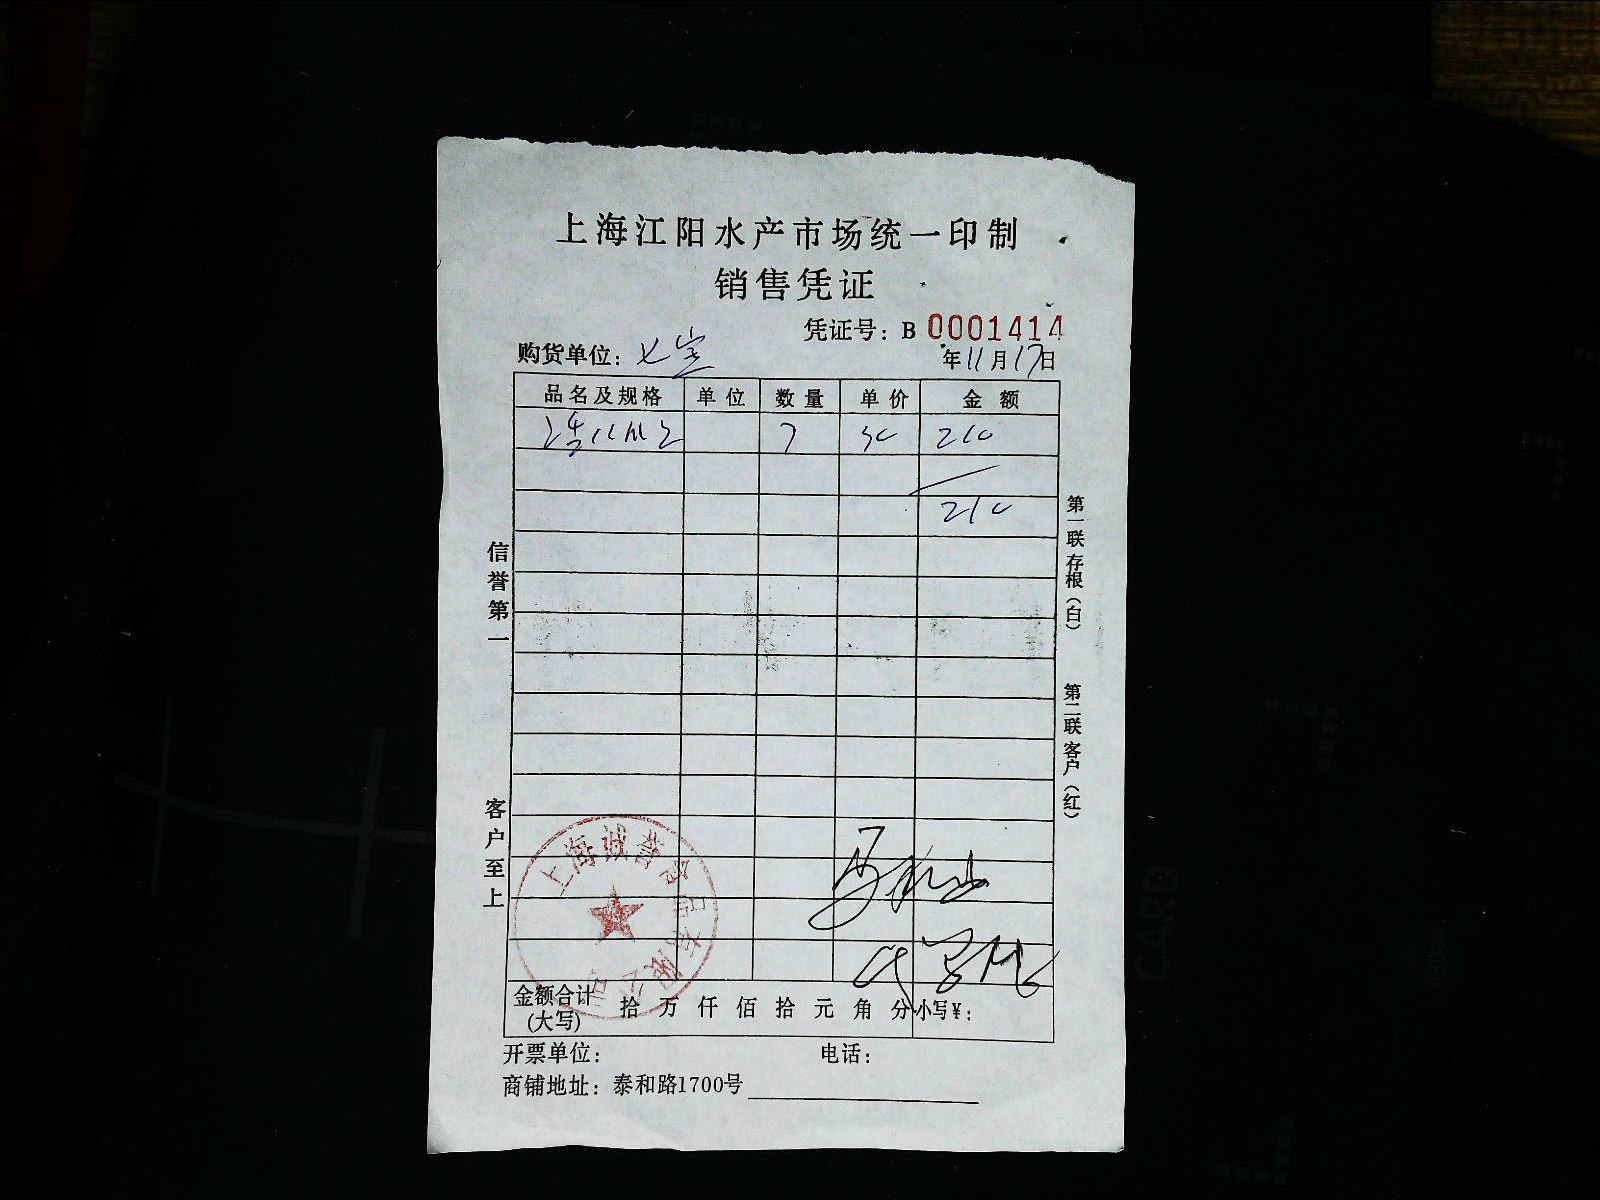 上海江阳水产市场统一印制
销售凭证
凭证号：B 0001414
购货单位：七宝
年11月17日
品名及规格 单位 数量 单价 金额
7 30 210
210
信誉第一
客户至上
第一联存根（白）
第二联客户（红）
上海诚誉食品有限公司
金额合计（大写） 拾 万 仟 佰 拾 元 角 分 小写¥：
开票单位： 电话：
商铺地址：泰和路1700号